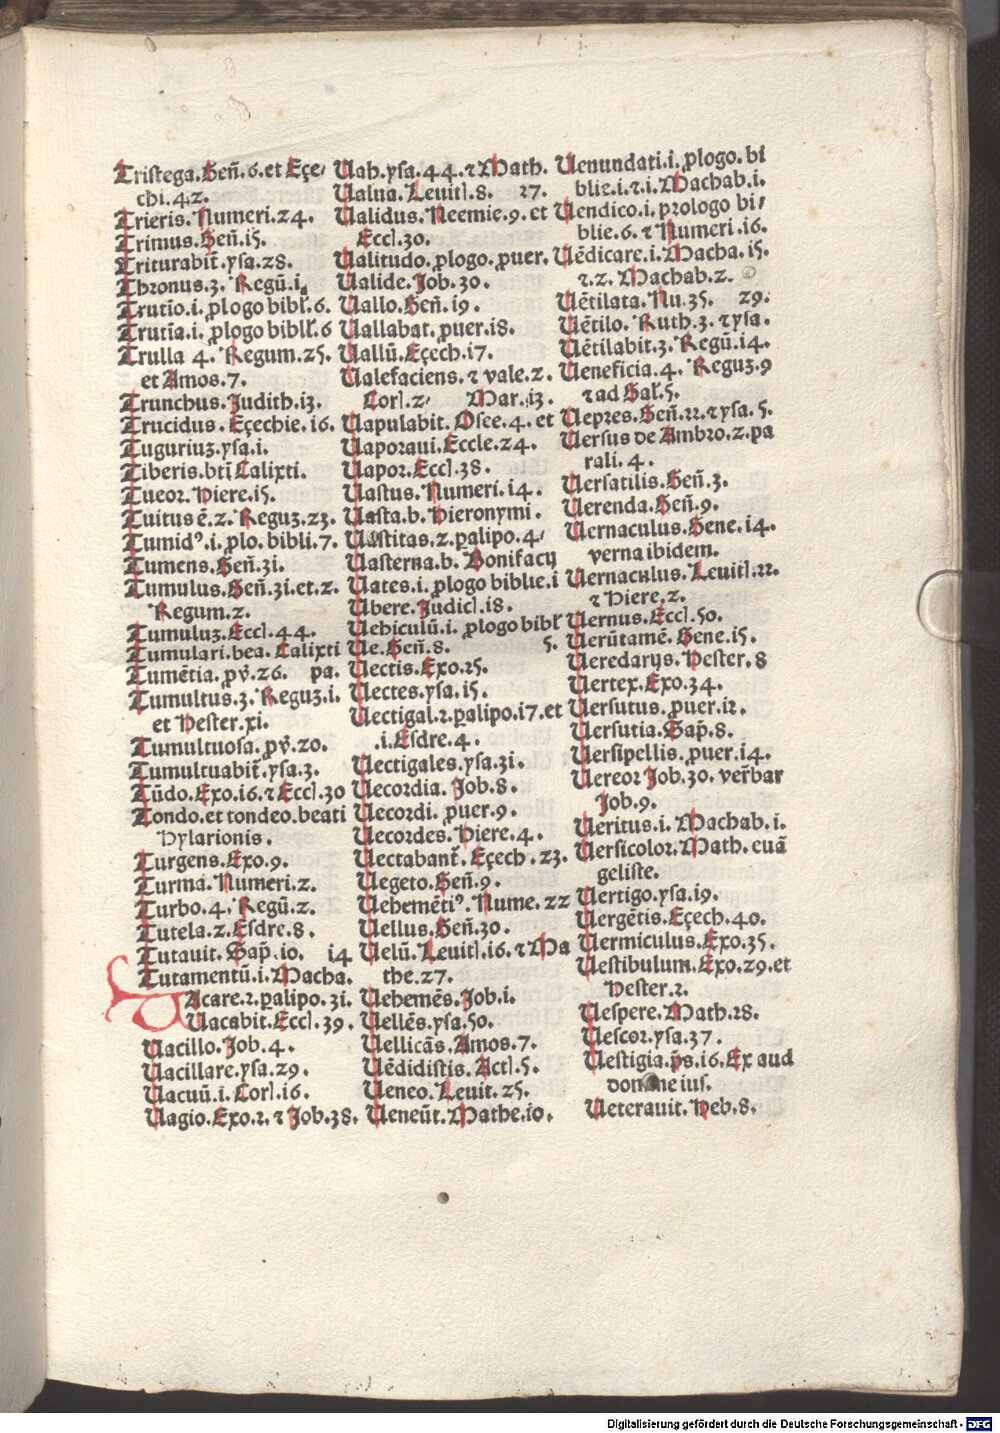 Tristega.Geñ.6.et Eçe/
chi.42.
Trieris.Numeri.24.
Trimus.Geñ.i5.
Triturabit̄.ysa.28.
Thronus.3.Regū.i.
Trutīo.i.plogo bibl̄.6.
Trutīa.i.plogo bibll̄.6
Trulla 4.Regum.25.
et Amos.7.
Trunchus.Judith.i3.
Trucidus.Eçechie.i6.
Tuguriuꝫ.ysa.i.
Tiberis.btī Calixti.
Tueor.Hiere.i5.
Tuitus ē.2.Reguꝫ.23.
Tumidꝰ.i.plo.bibli.7.
Tumens.Geñ.3i.
Tumulus.Geñ.3i.et.2.
Regum.2.
Tumuluꝫ.Eccl.44.
Tumulari.bea.Calixti
Tumētia.pv̄.26. pa.
Tumultus.3.Reguꝫ.i.
et Hester.xi.
Tumultuosa.pv̄.20.
Tumultuabit̄.ysa.3.
Tūdo.Exo.i6.⁊ Eccl.30
Tondo.et tondeo.beati
Hylarionis.
Turgens.Exo.9.
Turma.Numeri.2.
Turbo.4.Regū.2.
Tutela.2.Esdre.8.
Tutauit.Sap̄.io. i4
Tutamentū.i.Macha.
Vacare.2.ꝑalipo.3i.
Vacabit.Eccl.39.
Vacillo.Job.4.
Vacillare.ysa.29.
Vacuū.i.Corl.i6.
Vagio.Exo.2.⁊ Job.38.
Vah.ysa.44.⁊ Math.
Valua.Leuitl.8. 27.
Validus.Neemie.9.et
Eccl.30.
Valitudo.plogo.puer.
Valide.Job.30.
Vallo.Geñ.i9.
Vallabat.puer.i8.
Vallū.Eçech.i7.
Valefaciens.⁊ vale.2.
Corl.2/ Mar.i3.
Vapulabit.Osee.4.et
Vaporaui.Eccle.24.
Vapor.Eccl.38.
Vastus.Numeri.i4.
Vasta.b.Hieronymi.
Vastitas.2.ꝑalipo.4/
Vasterna.b.Bonifacij
Vates.i.plogo biblie.i
Vbere.Judicl.i8.
Vehiculū.i.plogo bibl̄
Ve.Geñ.8. 5.
Vectis.Exo.25.
Vectes.ysa.i5.
Vectigal.2.ꝑalipo.i7.et
.i.Esdre.4.
Vectigales.ysa.3i.
Vecordia.Job.8.
Vecordi.puer.9.
Vecordes.Hiere.4.
Vectabant̄.Eçech.23.
Vegeto.Geñ.9.
Vehemētiꝰ.Nume.22
Vellus.Geñ.30.
Velū.Leuitl.i6.⁊ Ma
the.27.
Vehemēs.Job.i.
Vellēs.ysa.50.
Vellicās.Amos.7.
Vēdidistis.Actl.5.
Veneo.Leuit.25.
Veneūt.Mathe.io.
Venundati.i.plogo.bi
blie.i.⁊.i.Machab.i.
Vendico.i.prologo bi/
blie.6.⁊ Numeri.i6.
Vēdicare.i.Macha.i5.
⁊.2.Machab.2.
Vētilata.Nu.35. 29.
Vētilo.Ruth.3.⁊ ysa.
Vētilabit.3.Regū.i4.
Veneficia.4.Reguꝫ.9
⁊ ad Gal̄.5.
Vepres.Geñ.22.⁊ ysa.5.
Versus de Ambro.2.pa
rali.4.
Versatilis.Geñ.3.
Verenda.Geñ.9.
Vernaculus.Gene.i4.
verna ibidem.
Vernaculus.Leuitl.22.
⁊ Hiere.2.
Vernus.Eccl.50.
Verūtamē.Gene.i5.
Veredarijs.Hester.8
Vertex.Exo.34.
Versutus.puer.i2.
Versutia.Sap̄.8.
Versipellis.puer.i4.
Vereor Job.30.ver̄bar
Job.9.
Veritus.i.Machab.i.
Versicolor.Math.euā
geliste.
Vertigo.ysa.i9.
Vergētis.Eçech.40.
Vermiculus.Exo.35.
Vestibulum.Exo.29.et
Hester.2.
Vespere.Math.28.
Vescor.ysa.37.
Vestigia.p̄s.i6.Ex aud
don ne ius.
Veterauit.Heb.8.
Digitalisierung gefördert durch die Deutsche Forschungsgemeinschaft - DFG